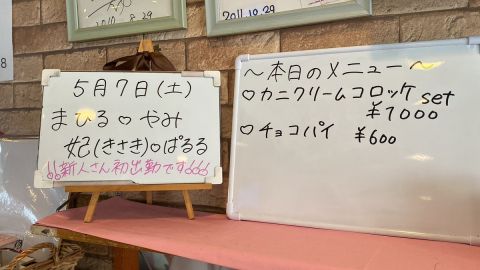 2011.8.29
2011.10.29
8
5月7日(土)
まひる♡やみ
妃(きさき)♡ぱるる
!!新人さん初出勤です
～本日のメニュー～
♡カニクリームコロッケset
¥1000
♡チョコパイ ¥600